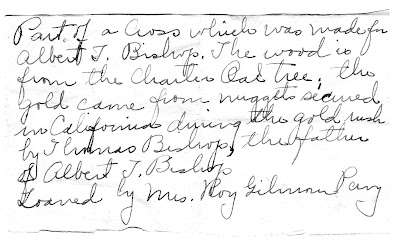 Part of a Cross which was made for
Albert T. Bishop. The wood is
from the Charter Oak tree; the
gold came from nuggets secured
in California during the gold rush
by Thomas Bishop, the father
of Albert T. Bishop
Loaned by Mrs. Roy Gilmore